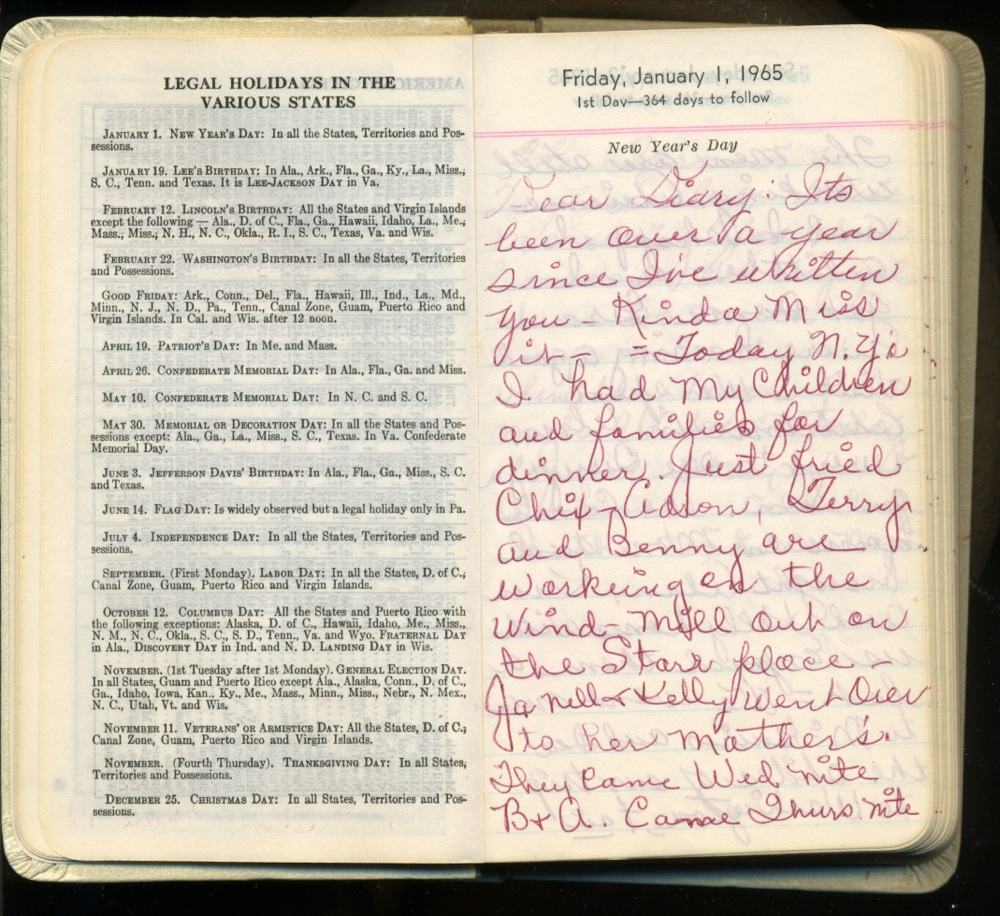 LEGAL HOLIDAYS IN THE
VARIOUS STATES
JANUARY 1. NEW YEAR'S DAY: In all the States, Territories and Pos-
sessions.
JANUARY 19. LEE'S BIRTHDAY: In Ala., Ark., Fla., Ga., Ky., La., Miss.,
S. C., Tenn. and Texas. It is LEE-JACKSON DAY in Va.
FEBRUARY 12. LINCOLN'S BIRTHDAY: All the States and Virgin Islands
except the following — Ala., D. of C., Fla., Ga., Hawaii, Idaho, La., Me.,
Mass., Miss., N. H., N. C., Okla., R. I., S. C., Texas, Va. and Wis.
FEBRUARY 22. WASHINGTON'S BIRTHDAY: In all the States, Territories
and Possessions.
GOOD FRIDAY: Ark., Conn., Del., Fla., Hawaii, Ill., Ind., La., Md.,
Minn., N. J., N. D., Pa., Tenn., Canal Zone, Guam, Puerto Rico and
Virgin Islands. In Cal. and Wis. after 12 noon.
APRIL 19. PATRIOT'S DAY: In Me. and Mass.
APRIL 26. CONFEDERATE MEMORIAL DAY: In Ala., Fla., Ga. and Miss.
MAY 10. CONFEDERATE MEMORIAL DAY: In N. C. and S. C.
MAY 30. MEMORIAL OR DECORATION DAY: In all the States and Pos-
sessions except: Ala., Ga., La., Miss., S. C., Texas. In Va. Confederate
Memorial Day.
JUNE 3. JEFFERSON DAVIS' BIRTHDAY: In Ala., Fla., Ga., Miss., S. C.
and Texas.
JUNE 14. FLAG DAY: Is widely observed but a legal holiday only in Pa.
JULY 4. INDEPENDENCE DAY: In all the States, Territories and Pos-
sessions.
SEPTEMBER. (First Monday). LABOR DAY: In all the States, D. of C.,
Canal Zone, Guam, Puerto Rico and Virgin Islands.
OCTOBER 12. COLUMBUS DAY: All the States and Puerto Rico with
the following exceptions: Alaska, D. of C., Hawaii, Idaho, Me., Miss.,
N. M., N. C., Okla., S. C., S. D., Tenn., Va. and Wyo. FRATERNAL DAY
in Ala., DISCOVERY DAY in Ind. and N. D. LANDING DAY in Wis.
NOVEMBER. (1st Tuesday after 1st Monday). GENERAL ELECTION DAY.
In all States, Guam and Puerto Rico except Ala., Alaska, Conn., D. of C.,
Ga., Idaho, Iowa, Kan., Ky., Me., Mass., Minn., Miss., Nebr., N. Mex.,
N. C., Utah, Vt. and Wis.
NOVEMBER 11. VETERANS' OR ARMISTICE DAY: All the States, D. of C.,
Canal Zone, Guam, Puerto Rico and Virgin Islands.
NOVEMBER. (Fourth Thursday). THANKSGIVING DAY: In all States,
Territories and Possessions.
DECEMBER 25. CHRISTMAS DAY: In all States, Territories and Pos-
sessions.
Friday, January 1, 1965
1st Day—364 days to follow
New Year's Day
Dear Diary: Its
been over a year
since I've written
you - Kinda Miss
it - = Today N.Y's
I had My Children
and families for
dinner. Just fried
Chix - Adson, Terry,
and Benny are
working on the
Wind-Mill out on
the Starr place -
Janell & Kelly Went Over
to her Mother's.
They came Wed nite
B & A. Came Thurs nite